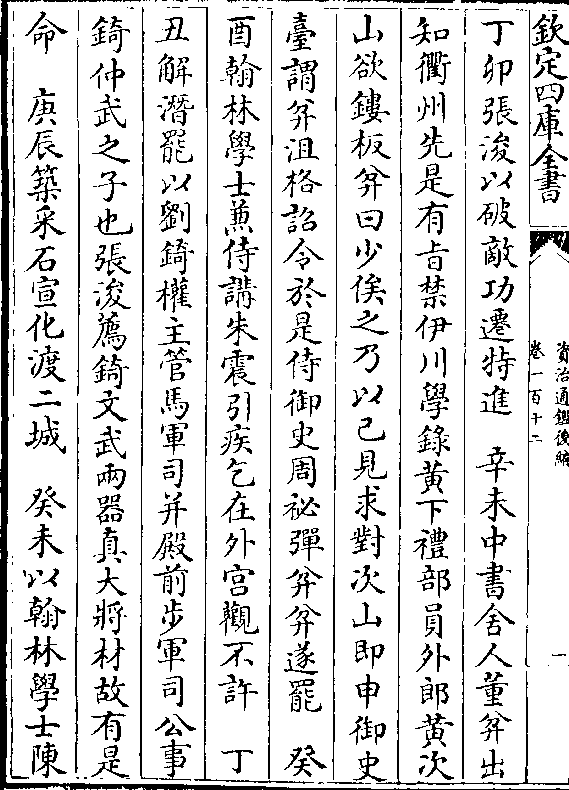 欽定四庫全書
資治通鑑後編
卷一百十二
一
丁卯張浚以破敵功遷特進　辛未中書舍人董弅出
知衢州先是有㫖禁伊川學錄黃下禮部員外郎黃次
山欲鏤板弅曰少俟之乃以已見求對次山即申御史
臺謂弅沮格詔令於是侍御史周祕彈弅弅遂罷　癸
酉翰林學士兼侍講朱震引疾乞在外宫觀不許　丁
丑解潛罷以劉錡權主管馬軍司并殿前步軍司公事
錡仲武之子也張浚薦錡文武兩器真大將材故有是
命　庚辰築采石宣化渡二城　癸未以翰林學士陳